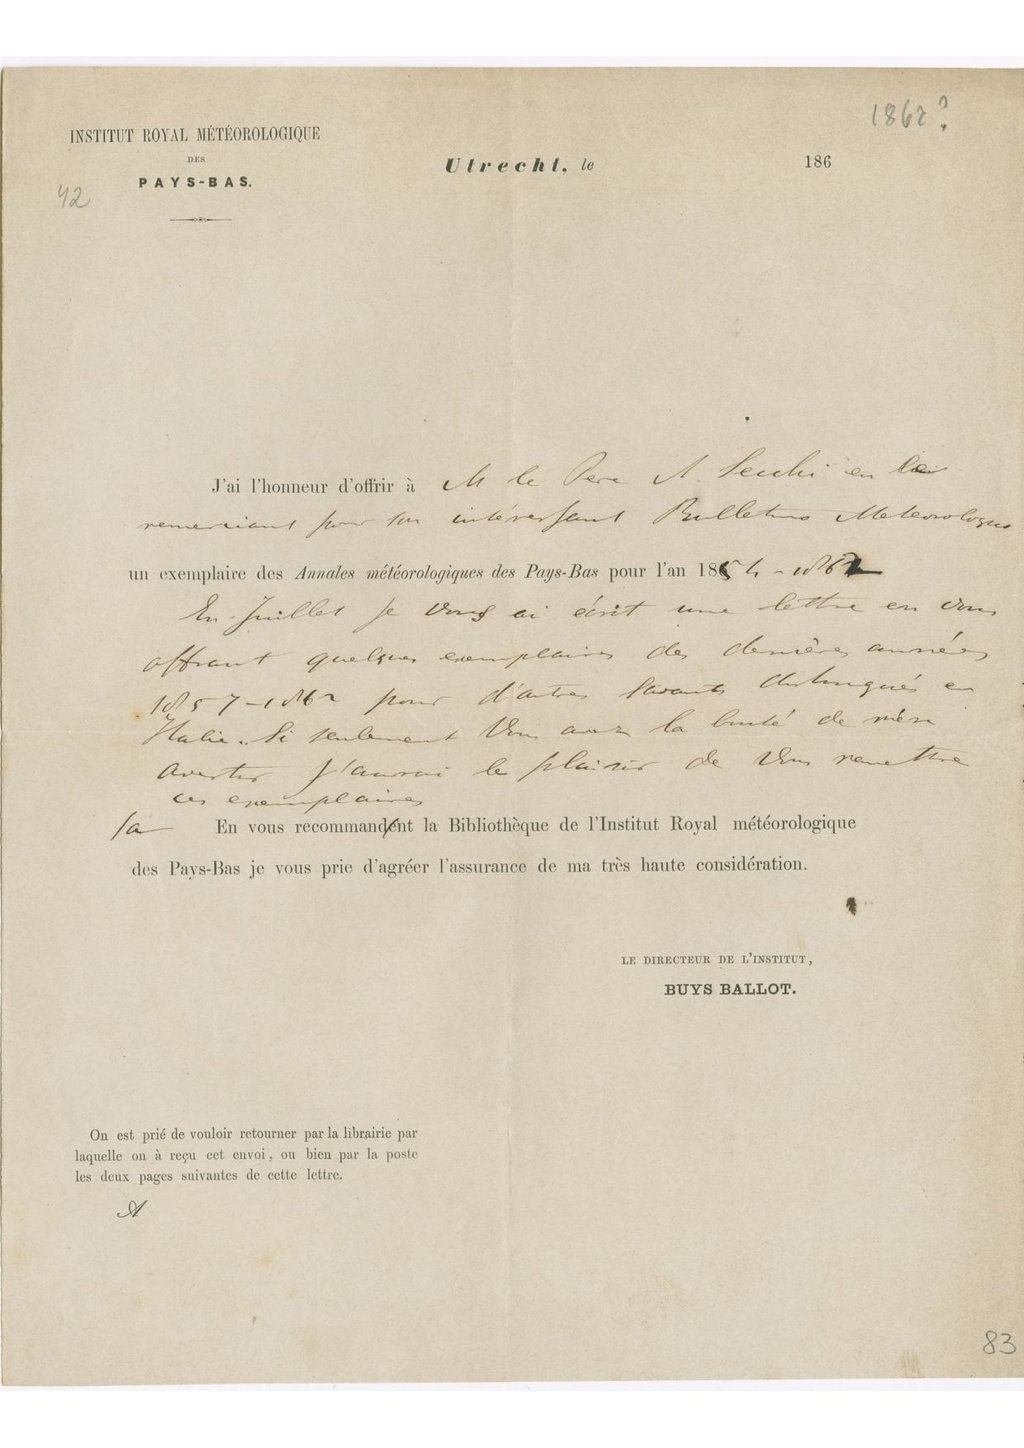 1862?
INSTITUT ROYAL MÉTÉOROLOGIQUE
DES
PAYS-BAS.
42
Utrecht, le 186
J'ai l'honneur d'offrir à M le Pere A. Secchi en le
remerciant pour son intéressant Bulletino Meteorologico
un exemplaire des Annales météorologiques des Pays-Bas pour l'an 1854 - 1862
En Juillet je Vous ai écrit une lettre en vous
offrant quelques exemplaires des dernières années
1857-1862 pour d'autres savants distingués en
Italie. Si seulement Vous avez la bonté de m'en
avertir j'aurai le plaisir de Vous remettre
ces exemplaires
En vous recommandent la Bibliothèque de l'Institut Royal météorologique
des Pays-Bas je vous prie d'agréer l'assurance de ma très haute considération.
LE DIRECTEUR DE L'INSTITUT,
BUYS BALLOT.
On est prié de vouloir retourner par la librairie par
laquelle on à reçu cet envoi, ou bien par la poste
les deux pages suivantes de cette lettre.
A
83